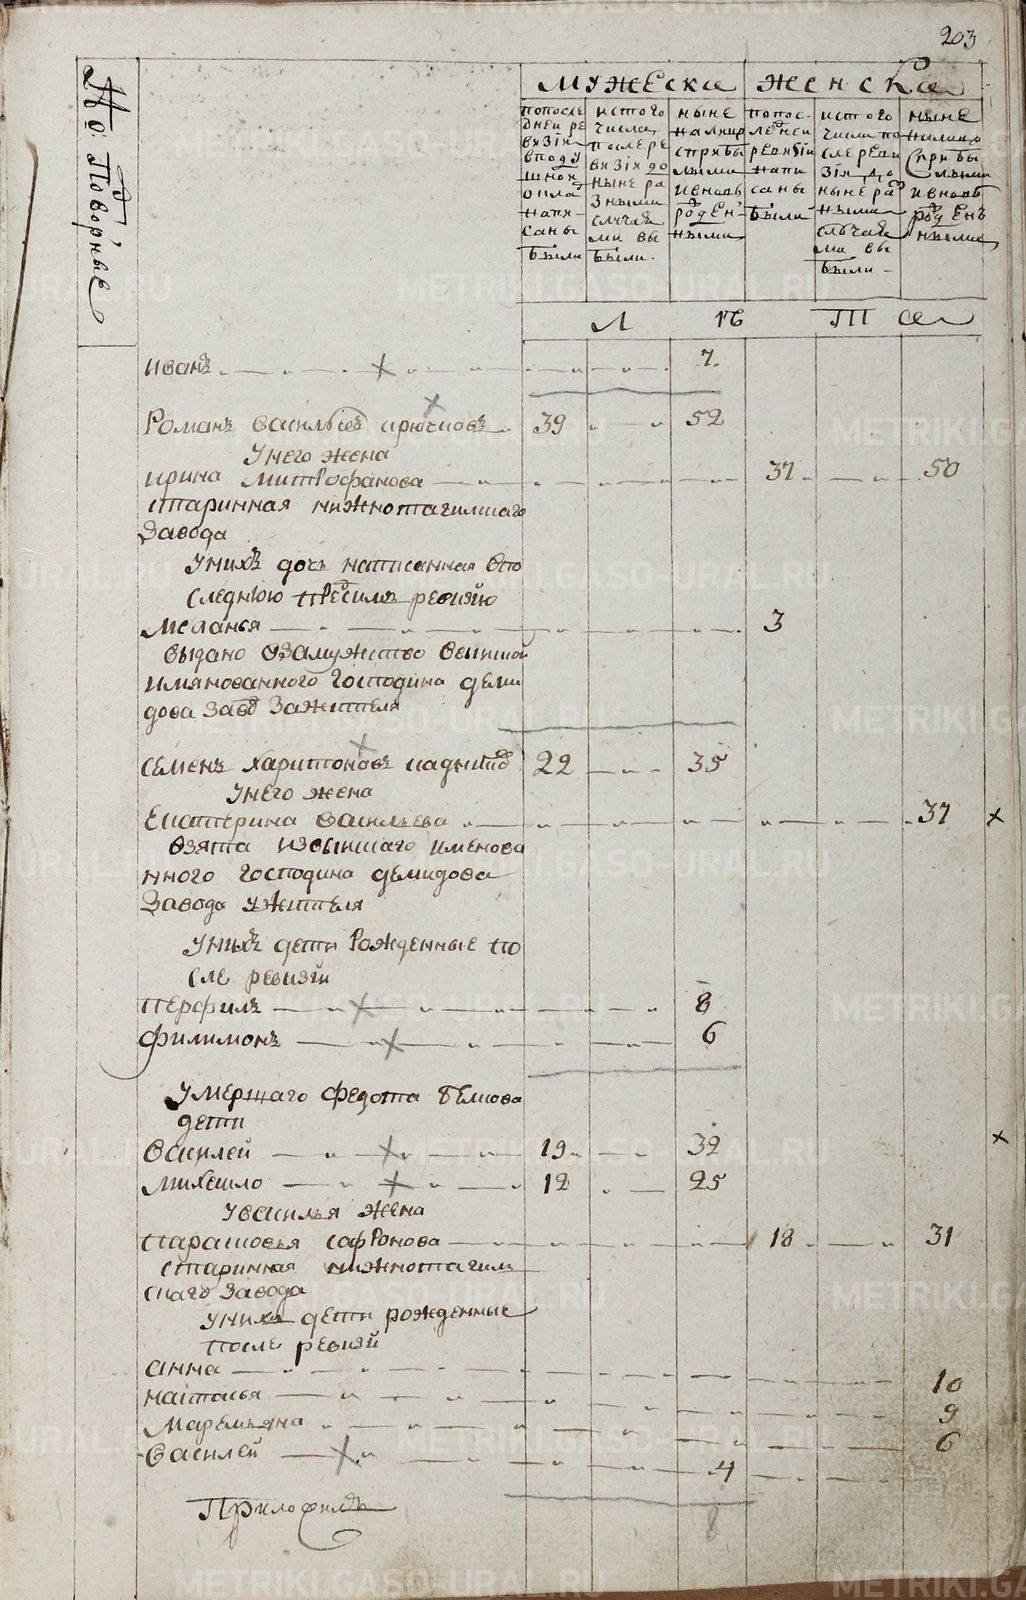 203
Подворные
мужеска женска
попосле
дней ре
визіи
вподу
шной
оклад
напи
саны
были
истого
числа
послере
визіи до
ныне ра
зными
случая
ми вы
были
ныне
налицо
сприбы
лыми
ивновь
рожден
ными
попос
ледней
ревизіи
напи
саны
были
истого
числа по
сле реви
зіи до
ныне раз
ными
случая
ми вы
были
ныне
налицо
сприбы
лыми
ивновь
рожденъ
ными
Л ѣ т а
иванъ 7
Романъ васильевъ крючковъ 39 52
Унего жена
ирина митрофанова 37 50
старинная нижнотагилскаго
завода
Унихъ дочь написанная впо
следнюю пред симъ ревизию
меланья 3
выдано взамужство ввыше
имянованного господина деми
дова завод зажителя
семенъ харитоновъ 22 35
Унего жена
Екатерина васильева 37
взята извышшаго именова
нного господина демидова
завода ужителя
Унихъ дети рожденные по
сле ревизіи
перфилъ 8
филимонъ 6
умершаго федота белкова
дети
василей 19 32
михаило 12 25
Увасилья жена
парасковья сафронова 18 31
старинная нижнотагил
скаго завода
унихъ дети рожденные
после ревизій
анна 10
наталья 9
маремьяна 6
василей 4
8